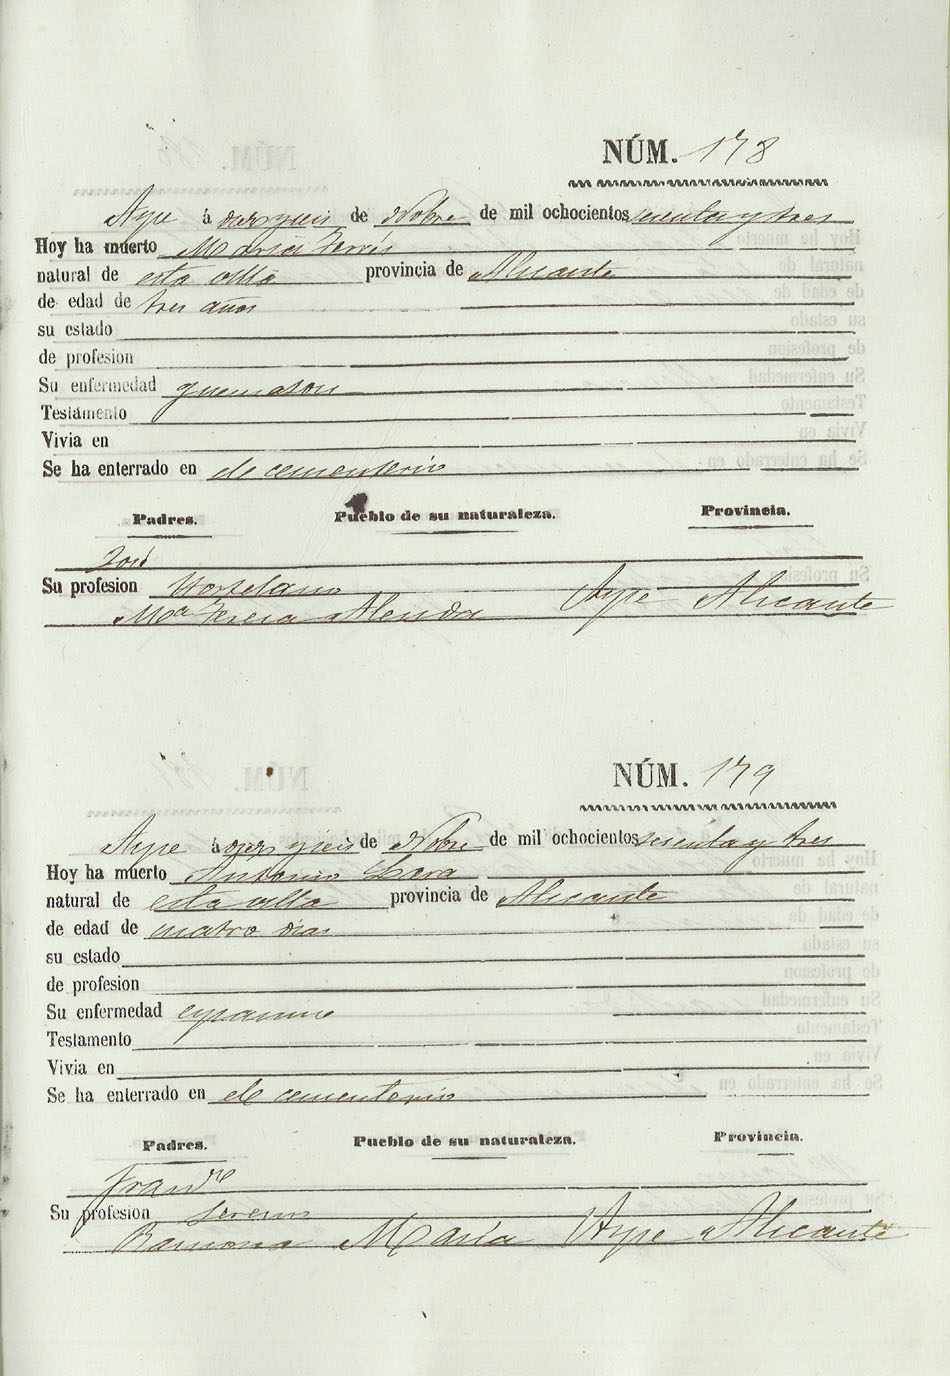 NÚM. 178
Aspe á diez y seis de Novbre de mil ochocientos sesenta y tres
Hoy ha muerto Maria
natural de esta villa provincia de Alicante
de edad de tres años
su estado
de profesion
Su enfermedad
Testamento
Vivia en
Se ha enterrado en el cementerio
Padres. Pueblo de su naturaleza. Provincia.
José
Su profesion Hortelano
Mª Teresa Alenda Aspe Alicante
NÚM. 179
Aspe á diez y seis de Novbre de mil ochocientos sesenta y tres
Hoy ha muerto Antonio Lara
natural de esta villa provincia de Alicante
de edad de cuatro dias
su estado
de profesion
Su enfermedad
Testamento
Vivia en
Se ha enterrado en el cementerio
Padres. Pueblo de su naturaleza. Provincia.
Su profesion
Ramona Maria Aspe Alicante